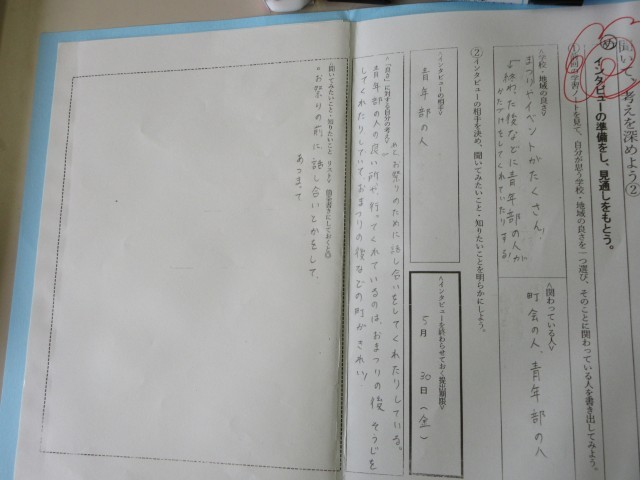 聞いて、考えを深めよう②
め インタビューの準備をし、見通しをもとう。
を見て、自分が思う学校・地域の良さを一つ選び、そのことに関わっている人を書き出してみよう。
<学校・地域の良さ>
まつりやイベントがたくさん。
終わった後などに青年部の人が
かたづけをしてくれていたりする
<関わっている人>
町会の人、青年部の人
②インタビューの相手を決め、聞いてみたいこと・知りたいことを明らかにしよう。
<インタビューの相手>
青年部の人
<インタビューを終わらせておく提出期限>
5月 30日(金)
<「良さ」に対する自分の考え>
お祭りのために話し合いをしてくれたりしている。
青年部の人の良い所や行ってくれているのは、おまつりの後そうじを
してくれたりしていておまつりの後などの町がきれい
<聞いてみたいこと・知りたいこと リスト
・お祭りの前に話し合いとかをして、
あつまって